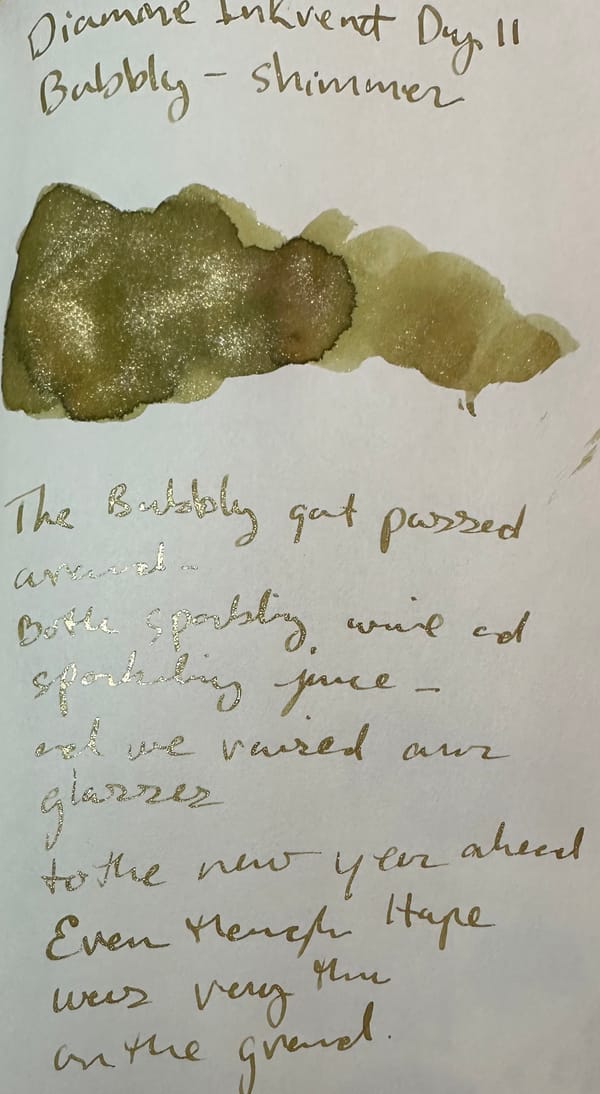 Diamine Inkvent Day 11
Bubbly - Shimmer
The Bubbly got passed
around -
Both sparkling wine and
sparkling juice -
and we raised our
glasses
to the new year ahead
Even though Hope
was very thin
on the ground.